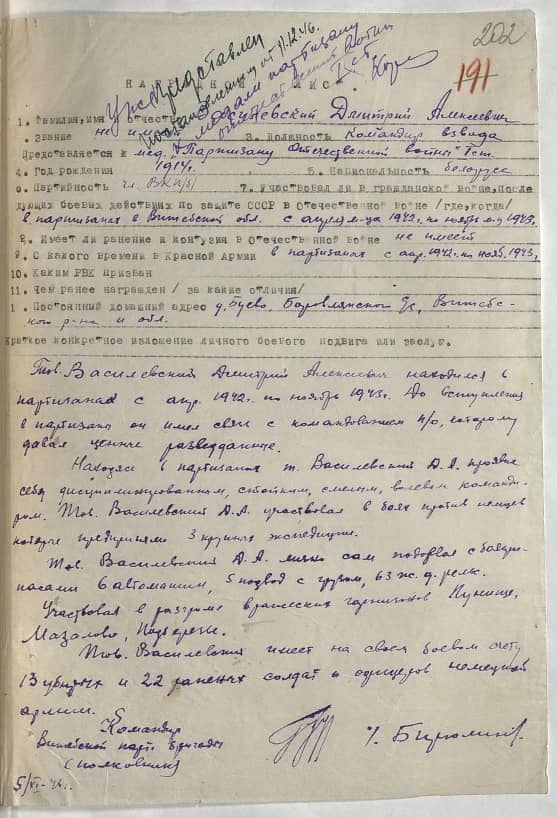 202
191
Представлен
постановлением от 11.12.46.
к медали партизану
отечественной войны
I ст.
НАГРАДНОЙ ЛИСТ.
1. Фамилия, имя и отчество Василевский Дмитрий Алексеевич
2. Звание не имеет 3. Должность командир взвода
Представляется к мед. "Партизану Отечественной войны" I ст.
4. Год рождения 1914г. 5. Национальность белорус
6. Партийность чл. ВКП/б/ 7. Участвовал ли в гражданской войне, после
дующих боевых действиях по защите СССР в Отечественной войне /где, когда/
в партизанах в Витебской обл. с апреля м-ца 1942г. по ноябрь м-ц 1943г.
8. Имеет ли ранение и контузии в Отечественной войне не имеет
9. С какого времени в Красной Армии в партизанах с апр. 1942г. по нояб. 1943г.
10. Каким РВК призван
11. Чем ранее награжден / за какие отличия/
1 . Постоянный домашний адрес д. Буево, Боровлянского с/с, Витебс-
кого р-на и обл.
Краткое конкретное изложение личного боевого подвига или заслуг.
Тов. Василевский Дмитрий Алексеевич находился в
партизанах с апр. 1942г. по ноябрь 1943г. До вступления
в партизаны он имел связи с командованием п/о, которому
давал ценные разведданные.
Находясь в партизанах т. Василевский Д.А. проявил
себя дисциплинированным, стойким, смелым, волевым команди-
ром. Тов. Василевский Д.А. участвовал в боях против немцев
которые предприняли 3 крупных экспедиции.
Тов. Василевский Д.А. лично сам подорвал с боепри-
пасами 6 автомашин, 5 подвод с грузом, 63 ж.д. рельс.
Участвовал в разгроме вражеских гарнизонов Кунище,
Мазолово, Подберезье.
Тов. Василевский имеет на своем боевом счету
13 убитых и 22 раненых солдат и офицеров немецкой
армии.
Командир
Витебской парт. бригады
полковник
/. Бирюлин/.
5/XI-46г.